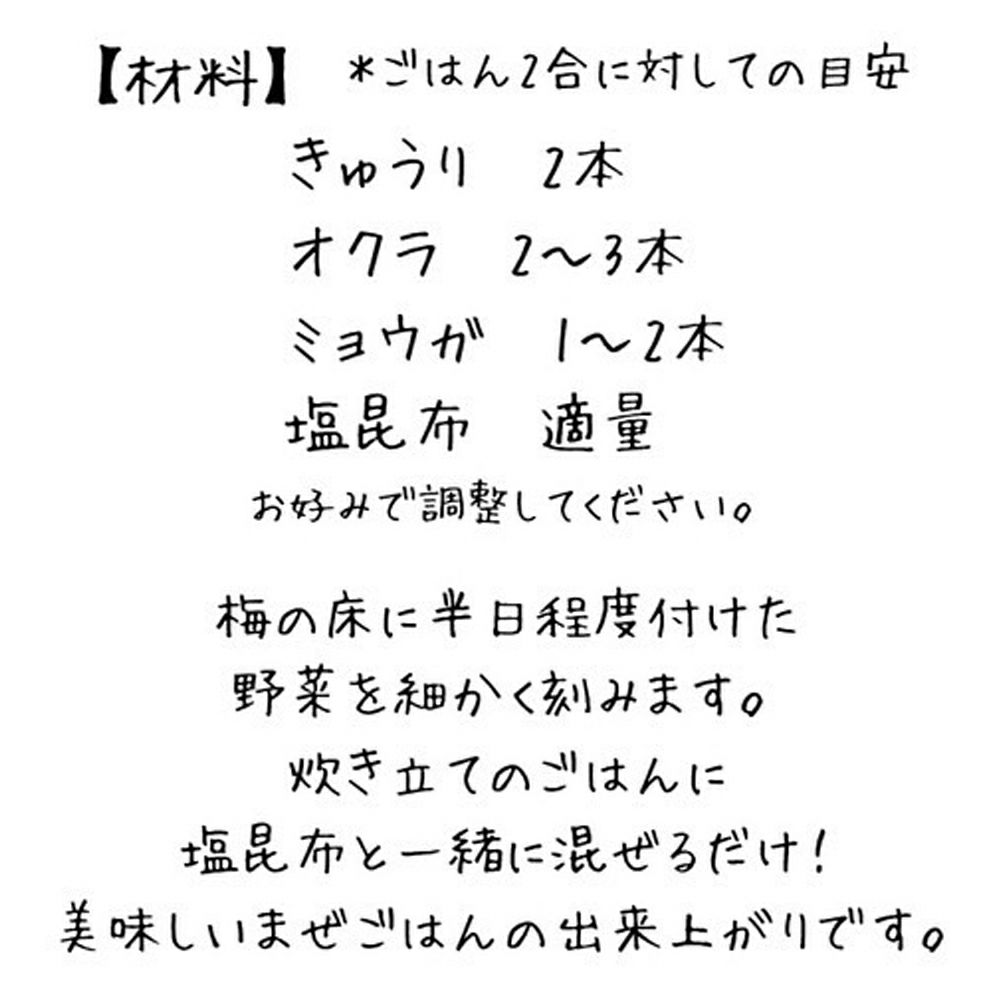 【材料】 *ごはん2合に対しての目安
きゅうり 2本
オクラ 2〜3本
ミョウガ 1〜2本
塩昆布 適量
お好みで調整してください。
梅の床に半日程度付けた
野菜を細かく刻みます。
炊き立てのごはんに
塩昆布と一緒に混ぜるだけ!
美味しいまぜごはんの出来上がりです。